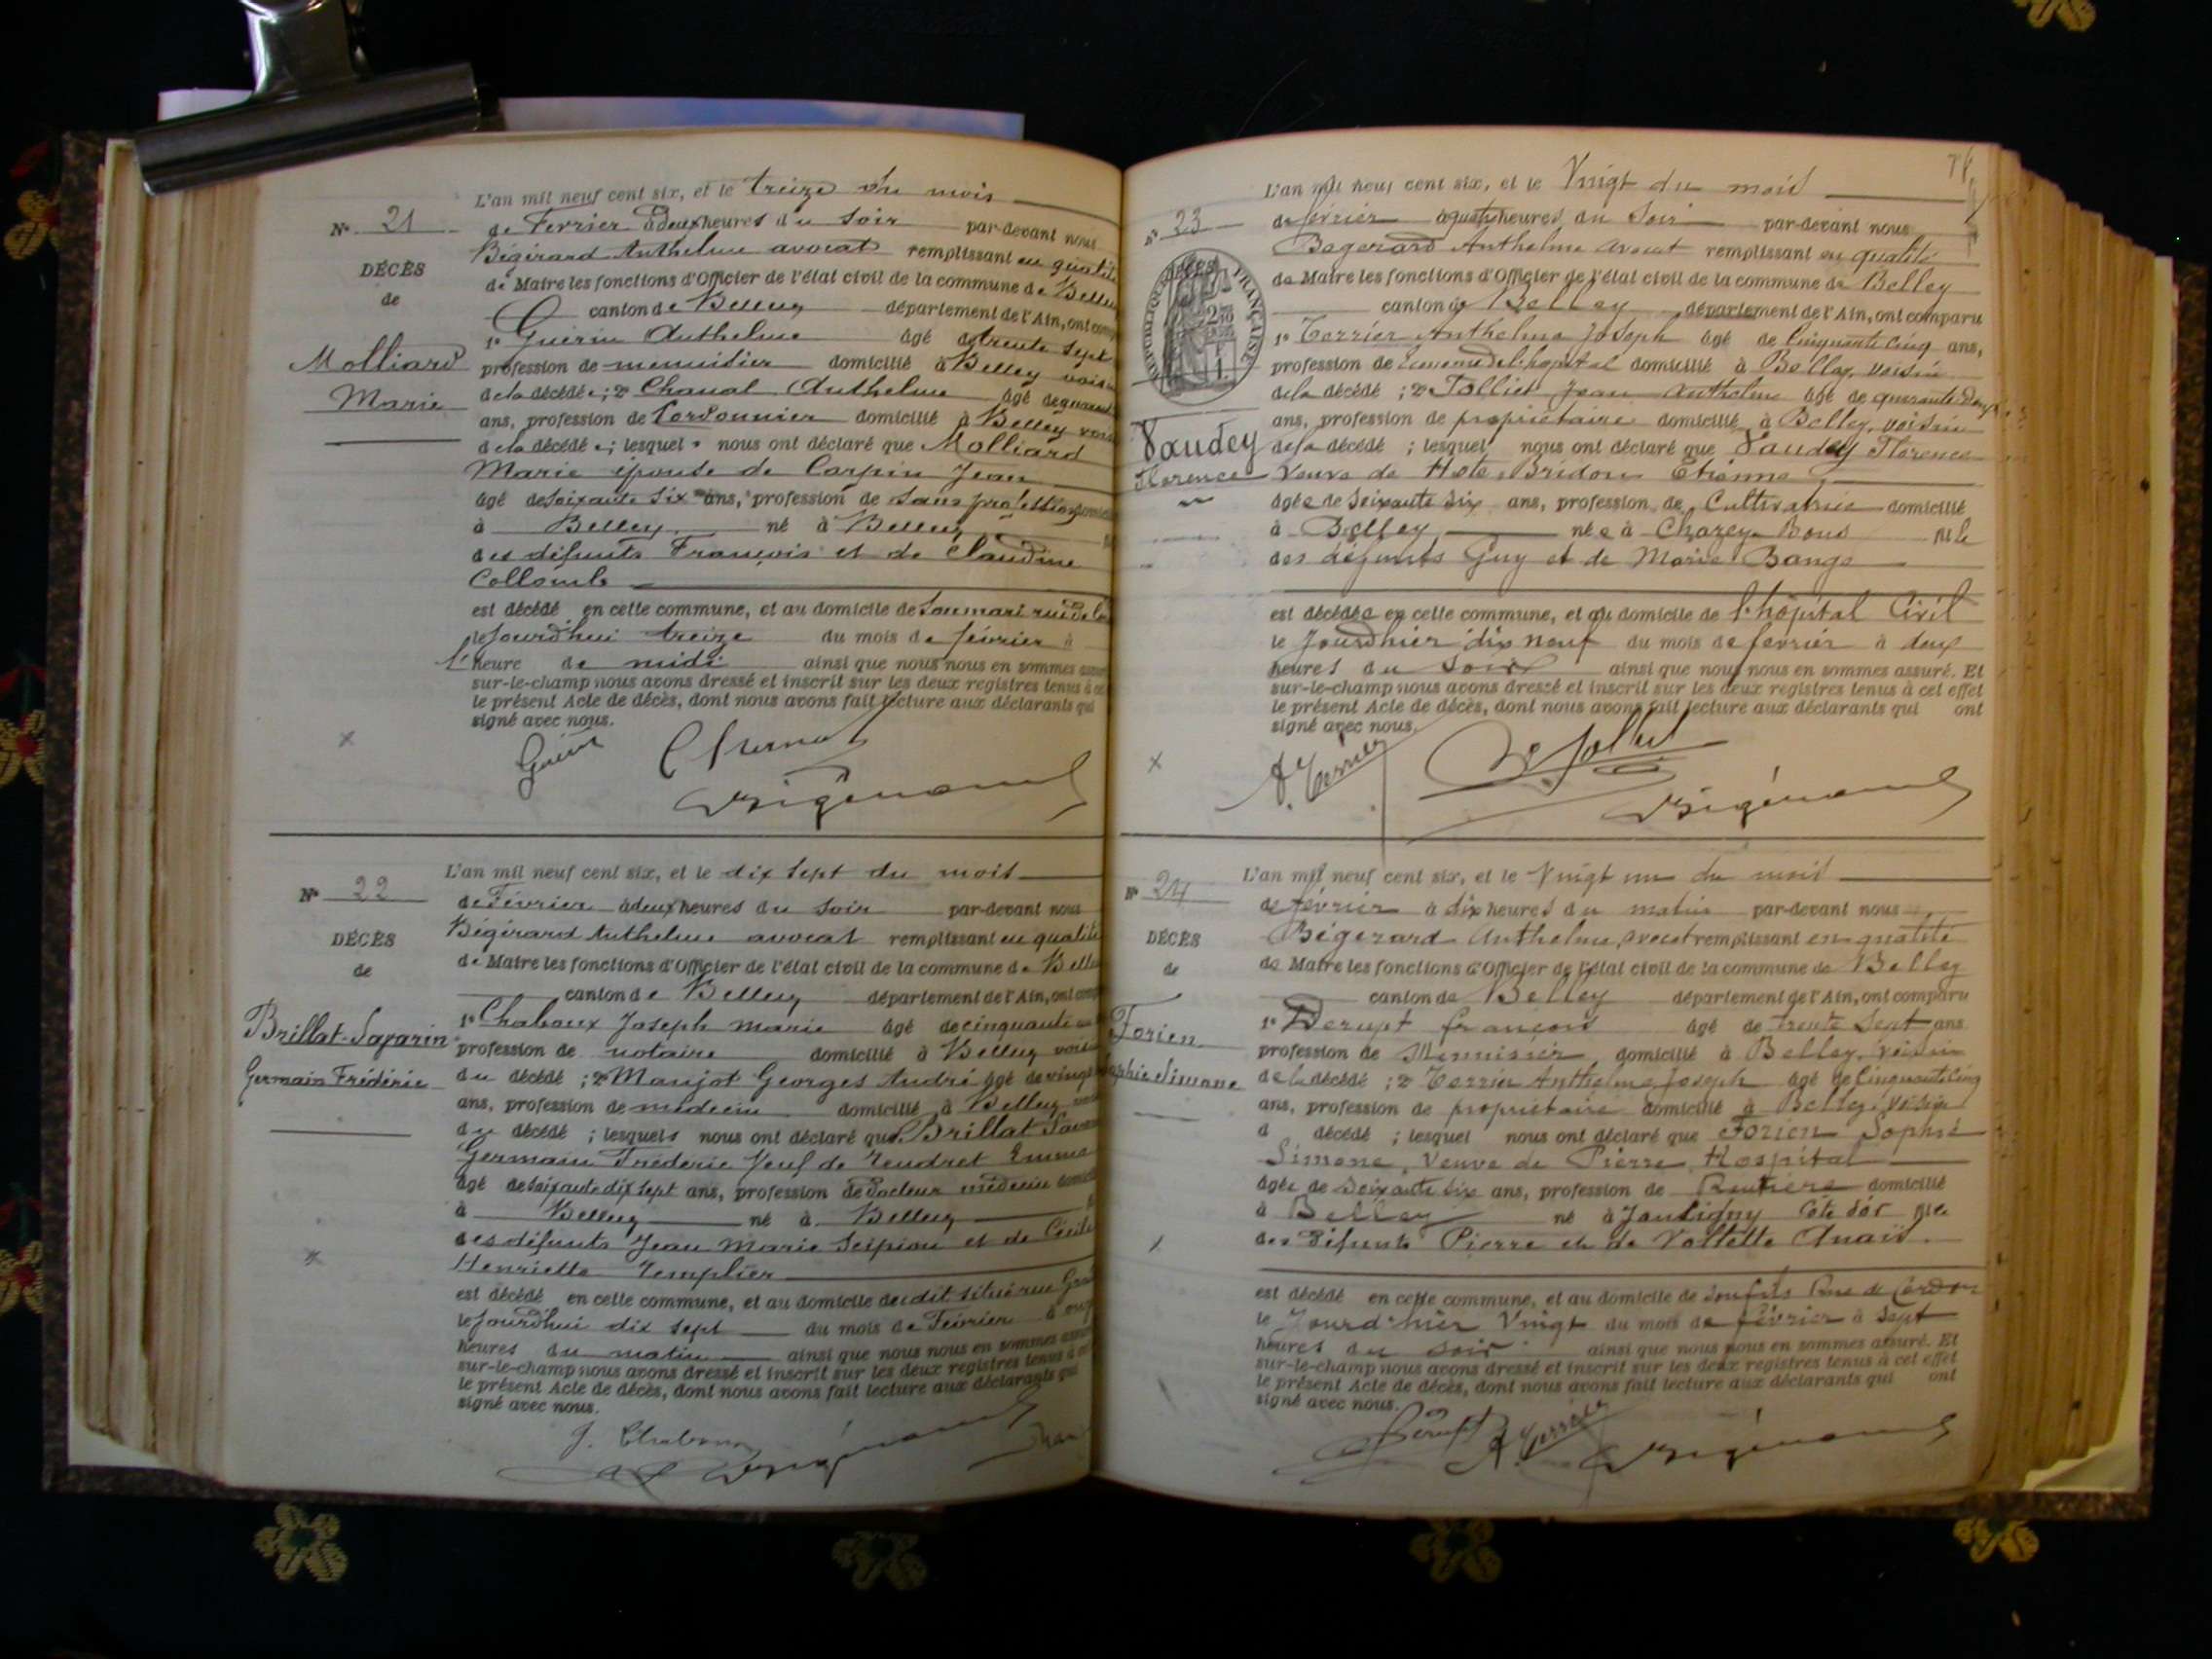 L'an mil neuf cent six, et le treize du mois
N° 21
de Fevrier à deux heures du soir par-devant nous
Bigérard Anthelme avocat remplissant en qualité
DÉCÈS
de Maire les fonctions d'Officier de l'état civil de la commune de Belley
de
canton de Belley département de l'Ain, ont comparu
1° Guérin Anthelme âgé de trente sept
Molliard
profession de menuisier domicilié à Belley voisin
de la décédée; 2° Anthelme âgé de
Marie
ans, profession de Cordonnier domicilié à Belley voisin
de la décédée; lesquels nous ont déclaré que Molliard
Marie épouse de Carpin Jean
âgé de soixante six ans, profession de sans profession
à Belley né à Belley
des défunts François et de Claudine
Collomb
est décédé en cette commune, et au domicile de son mari rue de
le jourd'hui treize du mois de février à
l'heure de midi ainsi que nous nous en sommes assuré
sur-le-champ nous avons dressé et inscrit sur les deux registres tenus à cet
le présent Acte de décès, dont nous avons fait lecture aux déclarants qui
signé avec nous.
Guérin
L'an mil neuf cent six, et le dix sept du mois
N° 22
de Février à deux heures du soir par-devant nous
Bigérard Anthelme avocat remplissant en qualité
DÉCÈS
de Maire les fonctions d'Officier de l'état civil de la commune de Belley
de
canton de Belley département de l'Ain, ont comparu
1° Chaboux Joseph Marie âgé de cinquante
Brillat-Savarin
profession de notaire domicilié à Belley voisin
Germain Frédéric
du décédé; 2° Maujot Georges André âgé de vingt
ans, profession de médecin domicilié à Belley
du décédé; lesquels nous ont déclaré que Brillat Savarin
Germain Fréderic Veuf de Emma
âgé de soixante dix sept ans, profession de docteur médecin domicilié
à Belley né à Belley
des défunts Jean Marie Scipion et de Cécile
Henriette Templier
est décédé en cette commune, et au domicile de dit situé rue
le jourd'hui dix sept du mois de Février à onze
heures du matin ainsi que nous nous en sommes assuré
sur-le-champ nous avons dressé et inscrit sur les deux registres tenus à cet
le présent Acte de décès, dont nous avons fait lecture aux déclarants qui
signé avec nous.
J. Chaboux
L'an mil neuf cent six, et le Vingt du mois
N° 23
de février à quatre heures du soir par-devant nous
Bagerard Anthelme avocat remplissant en qualité
de Maire les fonctions d'Officier de l'état civil de la commune de Belley
canton de Belley département de l'Ain, ont comparu
RÉPUBLIQUE FRANÇAISE
1° Terrier Anthelme Joseph âgé de Cinquante cinq ans,
profession de Econome de l'hopital domicilié à Belley, voisin
de la décédé; 2° Tollier Jean Anthelme âgé de quarante deux
ans, profession de propriétaire domicilié à Belley, voisin
Vaudey
de la décédé; lesquel nous ont déclaré que Vaudey Florence
Florence
Veuve de Hote-Bridon Etienne
âgée de Soixante six ans, profession de Cultivatrice domicilié
à Belley née à Chazey-Bons fille
des défunts Guy et de Marie Bange
est décédée en cette commune, et au domicile de l'hôpital Civil
le Jourd'hier dix neuf du mois de fevrier à deux
heures du soir ainsi que nous nous en sommes assuré. Et
sur-le-champ nous avons dressé et inscrit sur les deux registres tenus à cet effet
le présent Acte de décès, dont nous avons fait lecture aux déclarants qui ont
signé avec nous.
A. Terrier
L'an mil neuf cent six, et le Vingt un du mois
N° 24
de février à dix heures du matin par-devant nous
Bégerard Anthelme, avocat remplissant en qualité
DÉCÈS
de Maire les fonctions d'Officier de l'état civil de la commune de Belley
de
canton de Belley département de l'Ain, ont comparu
Forien
1° Derupt françois âgé de Trente Sept ans
profession de Menuisier domicilié à Belley, voisin
Sophie Simone
de la décédé; 2° Terrier Anthelme Joseph âgé de Cinquante cinq
ans, profession de propriétaire domicilié à Belley, voisin
d décédé; lesquel nous ont déclaré que Forien Sophie
Simone, Veuve de Pierre Hospital
âgée de Soixante six ans, profession de Rentière domicilié
à Belley né à Jautigny Côte d'or fille
des défunts Pierre et de Vallette Anaïs.
est décédé en cette commune, et au domicile de son fils Rue de Cordon
le Jourd'hier Vingt du mois de février à sept
heures du soir ainsi que nous nous en sommes assuré. Et
sur-le-champ nous avons dressé et inscrit sur les deux registres tenus à cet effet
le présent Acte de décès, dont nous avons fait lecture aux déclarants qui ont
signé avec nous.
Derupt A. Terrier